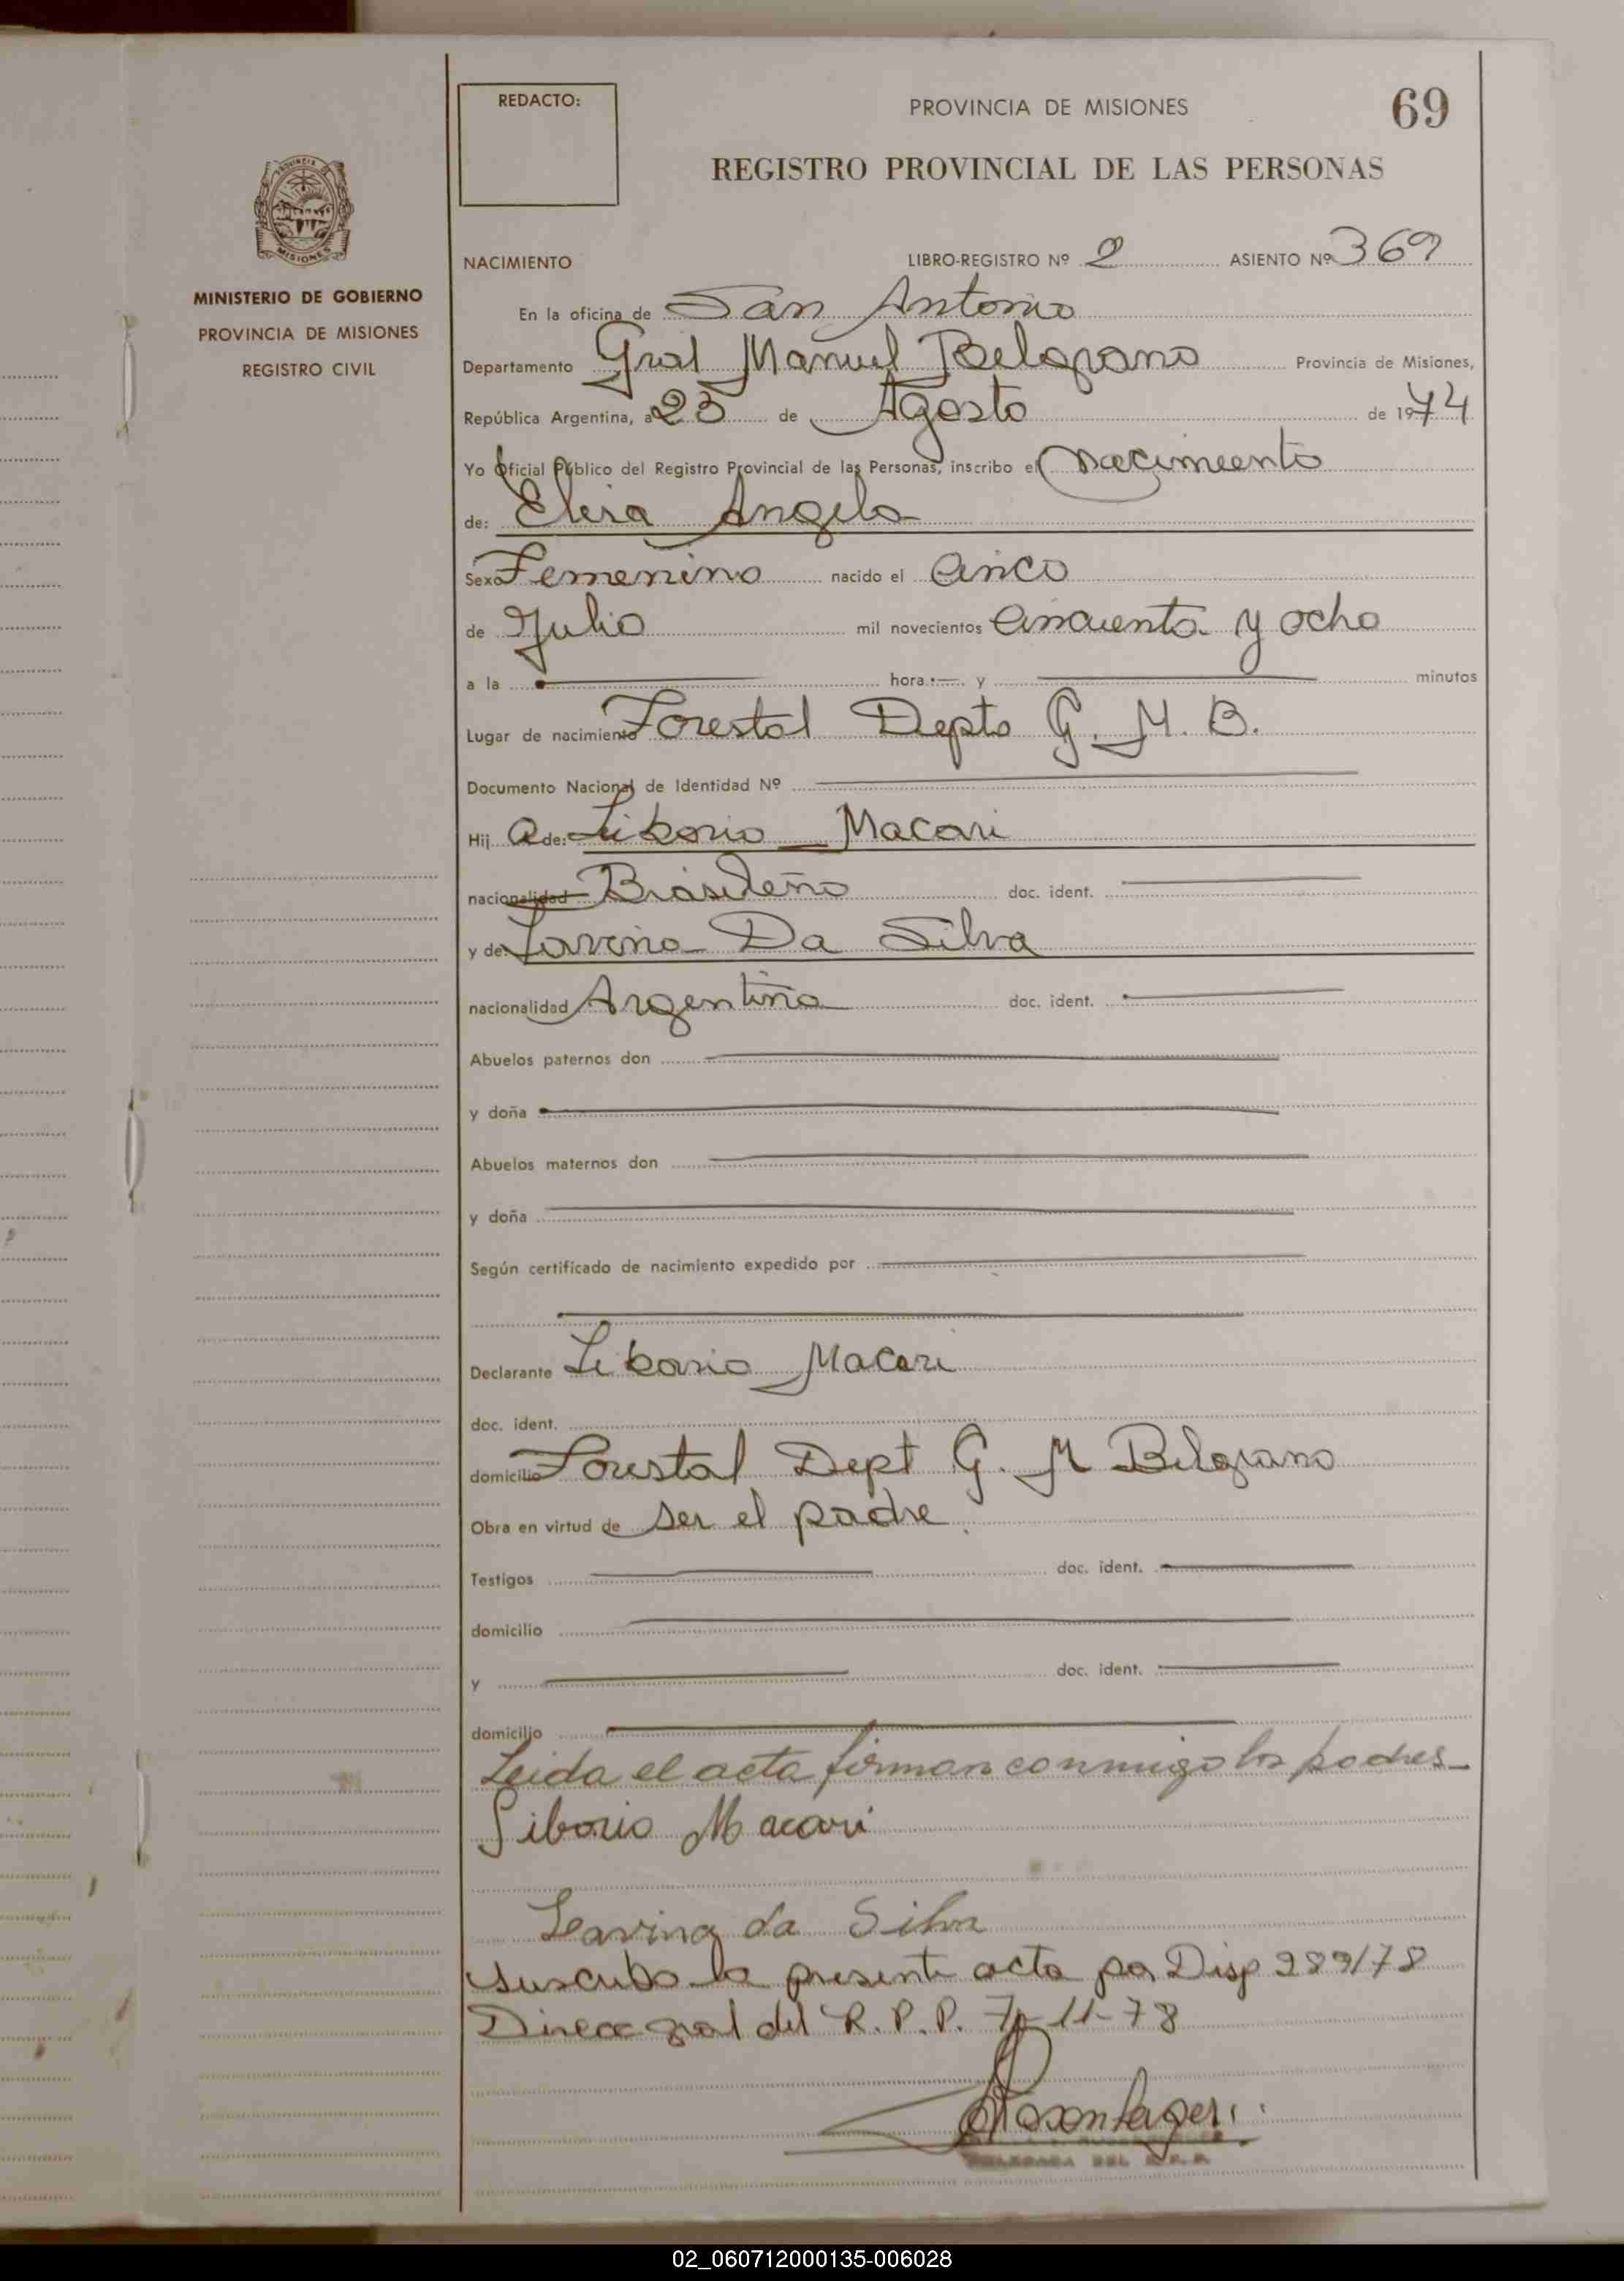 REDACTO:
PROVINCIA DE MISIONES
69
REGISTRO PROVINCIAL DE LAS PERSONAS
PROVINCIA
MISIONES
MINISTERIO DE GOBIERNO
PROVINCIA DE MISIONES
REGISTRO CIVIL
NACIMIENTO LIBRO-REGISTRO Nº 2 ASIENTO Nº 369
En la oficina de San Antonio
Departamento Gral Manuel Belgrano Provincia de Misiones,
República Argentina, a 23 de Agosto de 1974
Yo Oficial Público del Registro Provincial de las Personas, inscribo el nacimiento
de: Elira Angela
Sexo Femenino nacido el Cinco
de Julio mil novecientos Cincuenta y ocho
a la hora y minutos
Lugar de nacimiento Forestal Depto G. M. B.
Documento Nacional de Identidad Nº
Hij a de: Liborio Macari
nacionalidad Brasileño doc. ident.
y de: Lavina Da Silva
nacionalidad Argentina doc. ident.
Abuelos paternos don
y doña
Abuelos maternos don
y doña
Según certificado de nacimiento expedido por
Declarante Liborio Macari
doc. ident.
domicilio Forestal Dept G. M Belgrano
Obra en virtud de ser el padre.
Testigos doc. ident.
domicilio
y doc. ident.
domicilio
Leida el acta firman conmigo los padres
Liborio Macari
Leavina da Silva
suscribo la presente acta por Disp 289/78
Direcc gral del R. P. P. 7-11-78
DELEGADA DEL R.P.P.
02_060712000135-006028